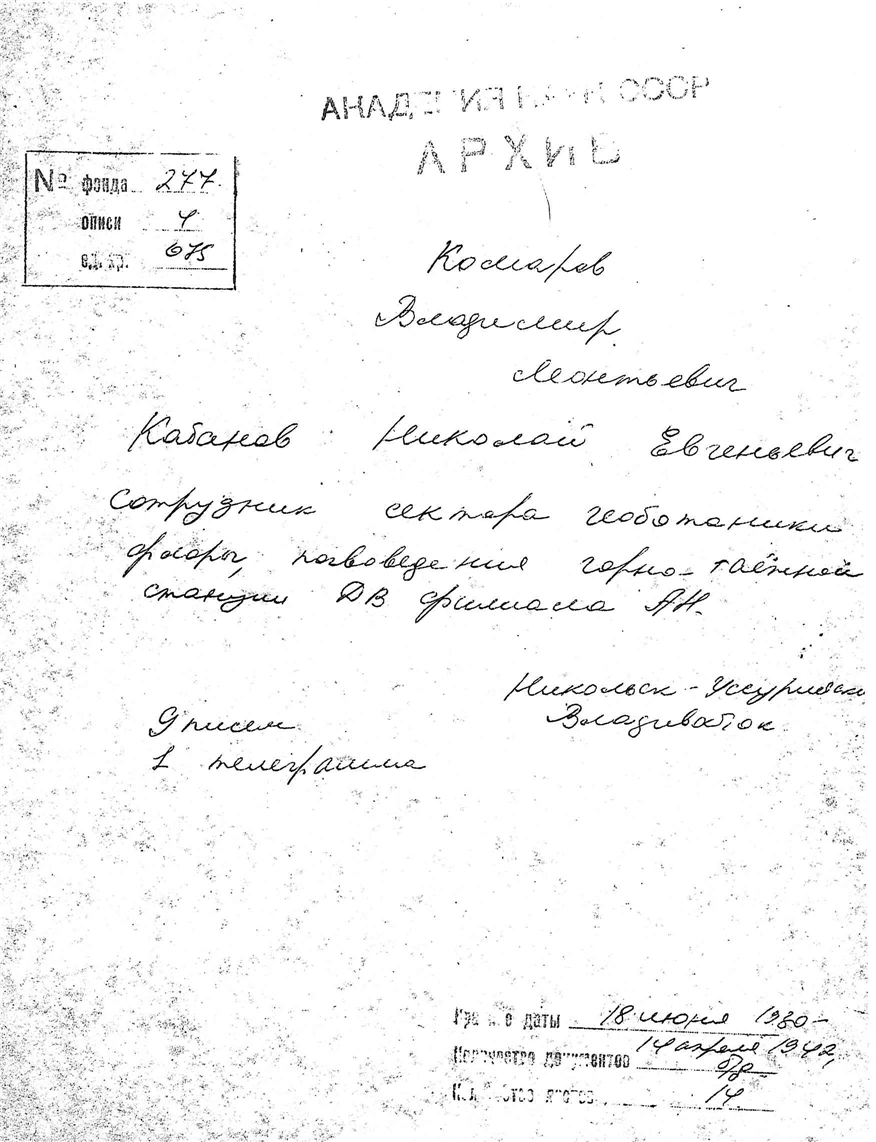 АКАДЕМИЯ НАУК СССР
АРХИВ
№ фонда 277.
описи 4
ед. хр. 675
Комаров
Владимир
Леонтьевич
Кабанов Николай Евгеньевич
сотрудник сектора геоботаники
флоры, почвоведения горно-таёжной
станции ДВ филиала АН.
Никольск-Уссурийск
Владивосток
9 писем
1 телеграмма
Крайние даты 18 июня 1930-
14 апреля 1942,
Количество документов б/д
Количество листов 14.